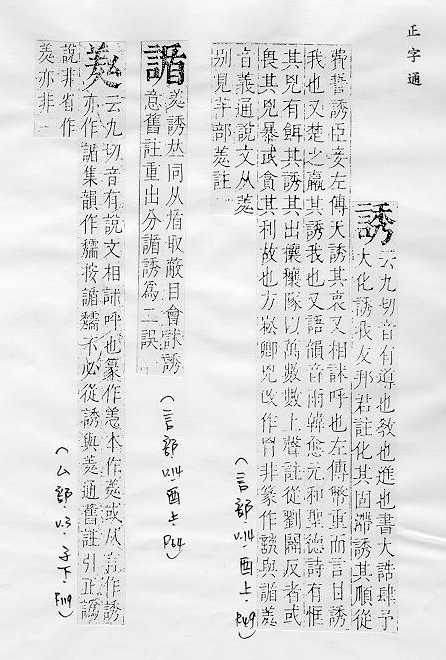 正字通
誘 云九切音有導也敎也進也書大誥肆予
大化誘我友邦君註化其固滯誘其順從
費誓誘臣妾左傳天誘其衷又相訹呼也左傳幣重而言甘誘
我也又楚之羸其誘我也又語韻音雨韓愈元和聖德詩有恇
其兇有餌其誘其出攘攘隊以萬數數上聲註從劉闢反者或
畏其兇暴或貪其利故也方崧卿兇改作胷非篆作䛻與䛢羑
音義通說文从羑
別見羊部羑註
(言部 V.14 酉上 P.49)
䛢 羑誘𠀤同从盾取蔽目會訹誘
意舊註重出分䛢誘爲二誤
(言部 V.14 酉上 P.64)
羑 云九切音有說文相訹呼也篆作羑本作羑或从言作誘
亦作䛢集韻作𧫏按䛢不必從誘與羑通舊註引正譌
說非省作
羑亦非
(厶部 V.3 子下 P.119)